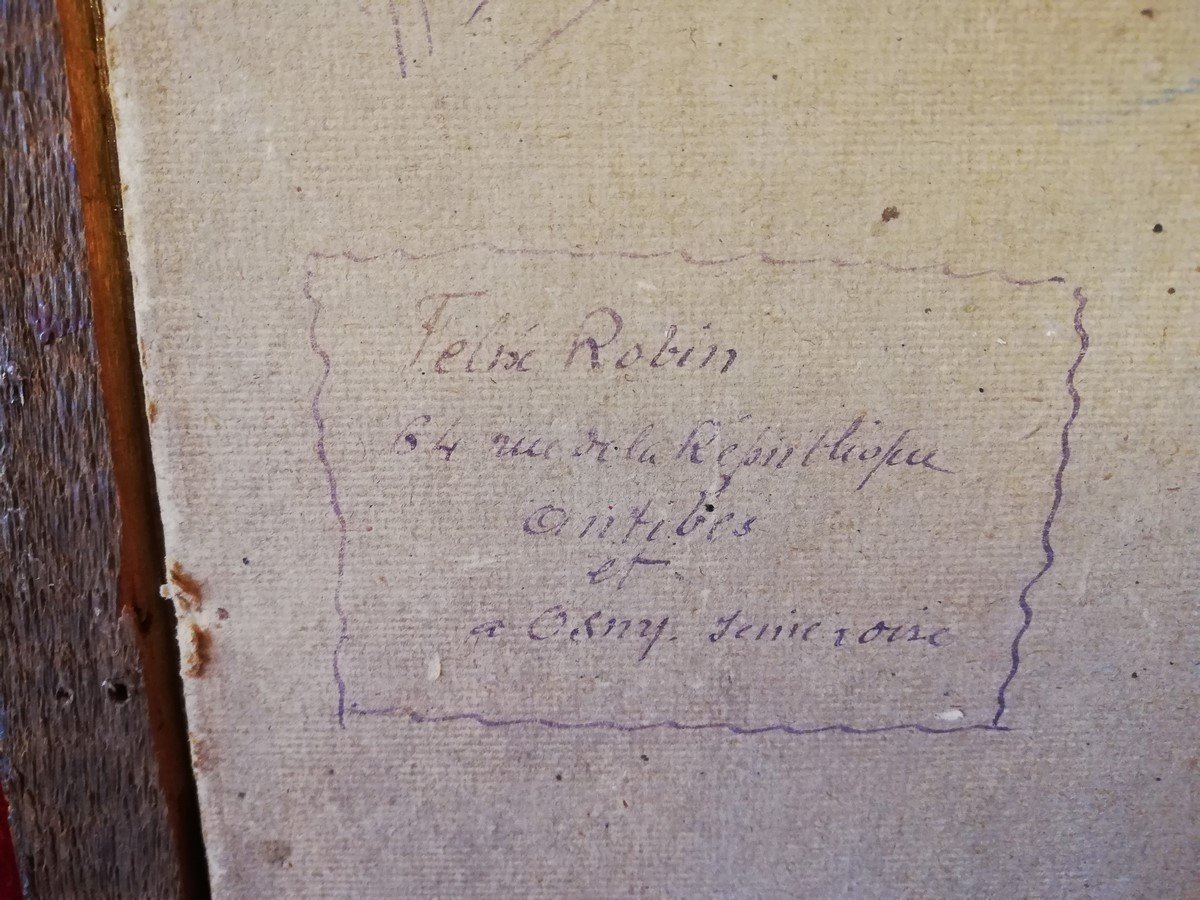 Felix Robin
64 rue de la République
Antibes
et
a Osny. Seine & oise